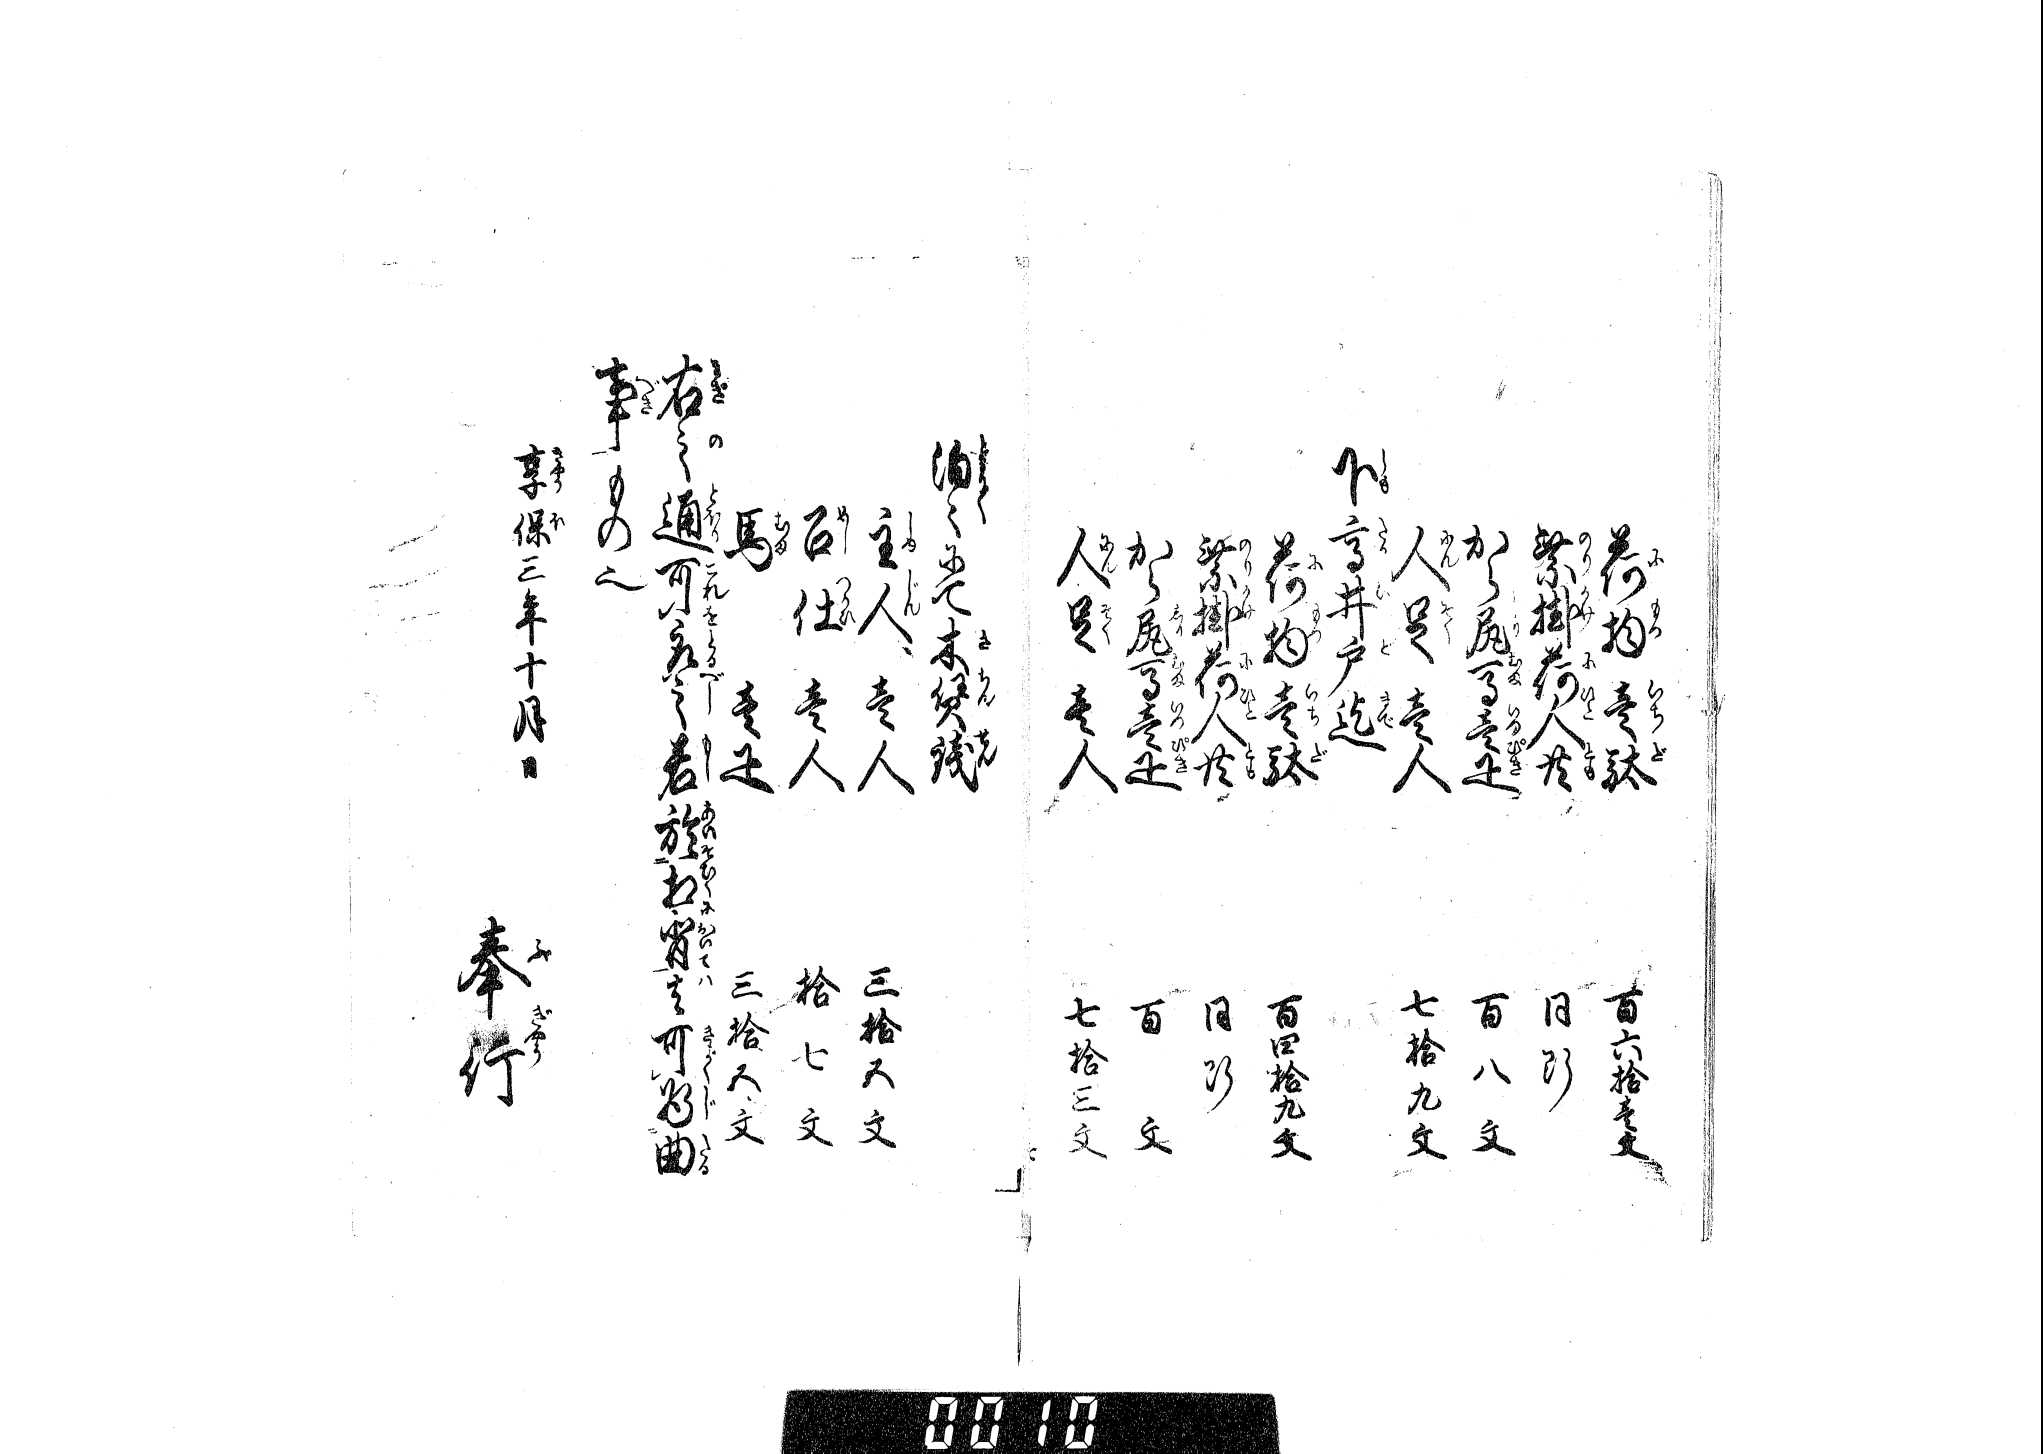 荷物壱駄 百六拾壱文
乗掛荷人共 同断
から尻馬壱疋 百八文
人足壱人 七拾九文
下高井戸迄
荷物壱駄 百四拾九文
乗掛荷人共 同断
から尻馬壱疋 百文
人足壱人 七拾三文
泊々にて木賃銭
主人壱人 三拾五文
召仕壱人 拾七文
馬壱疋 三拾五文
右之通可取之若於相背者可為曲
事もの也
享保三年十月日
奉行
0010